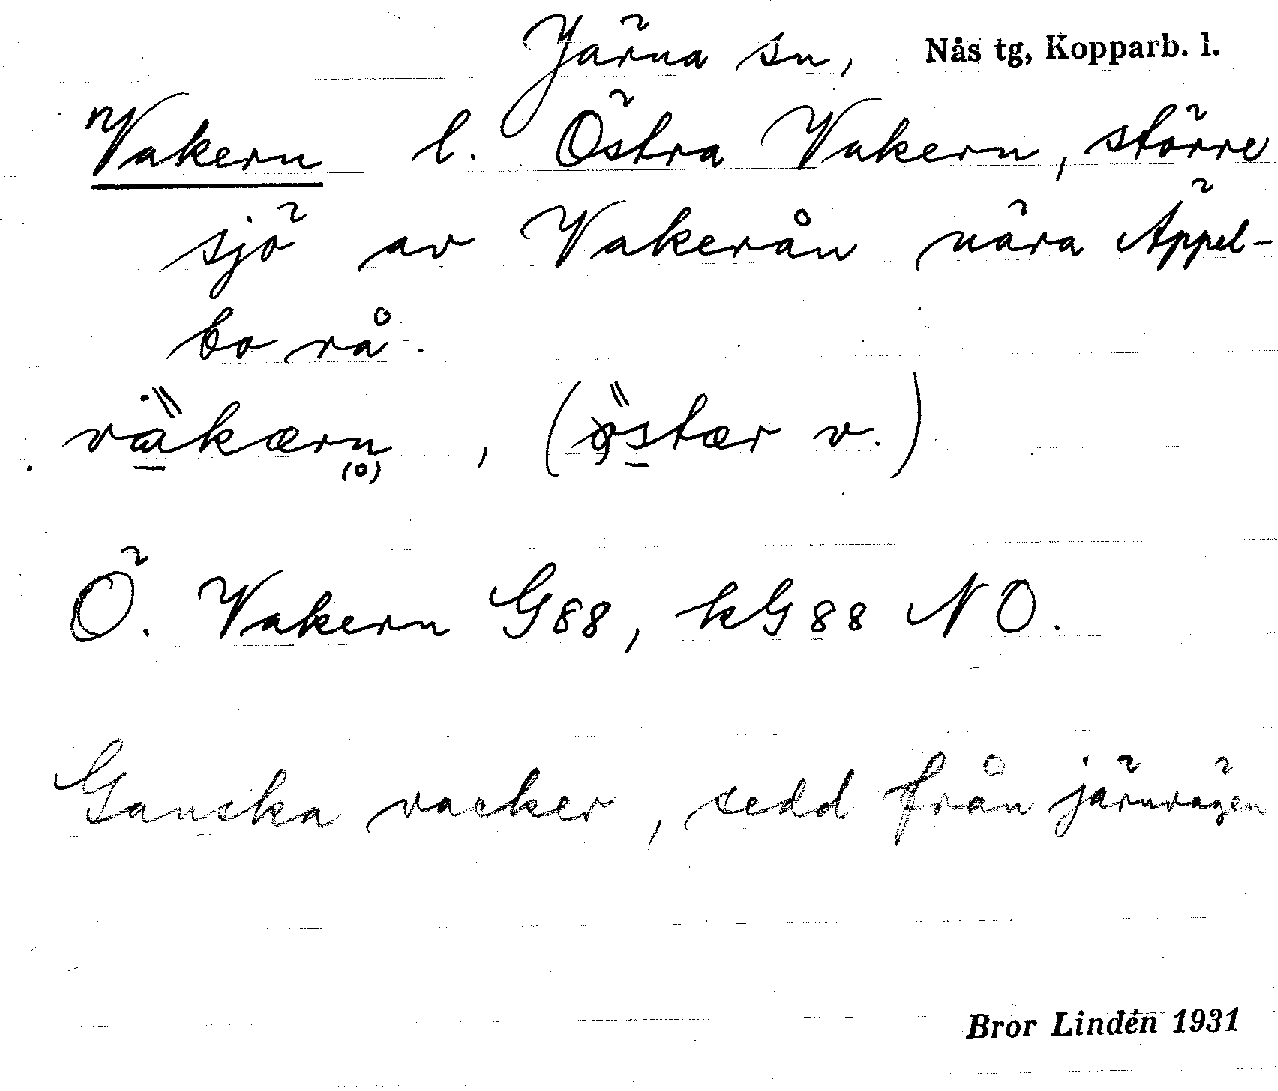 Järna sn, Nås tg, Kopparb. l.
Vakern l. Östra Vakern, större
sjö av Vakerån nära Äppel-
bo rå.
väkærn, (östær v.)
(o)
Ö. Vakern G88, kG88 NO.
Ganska vacker, sedd från järnvägen
Bror Lindén 1931